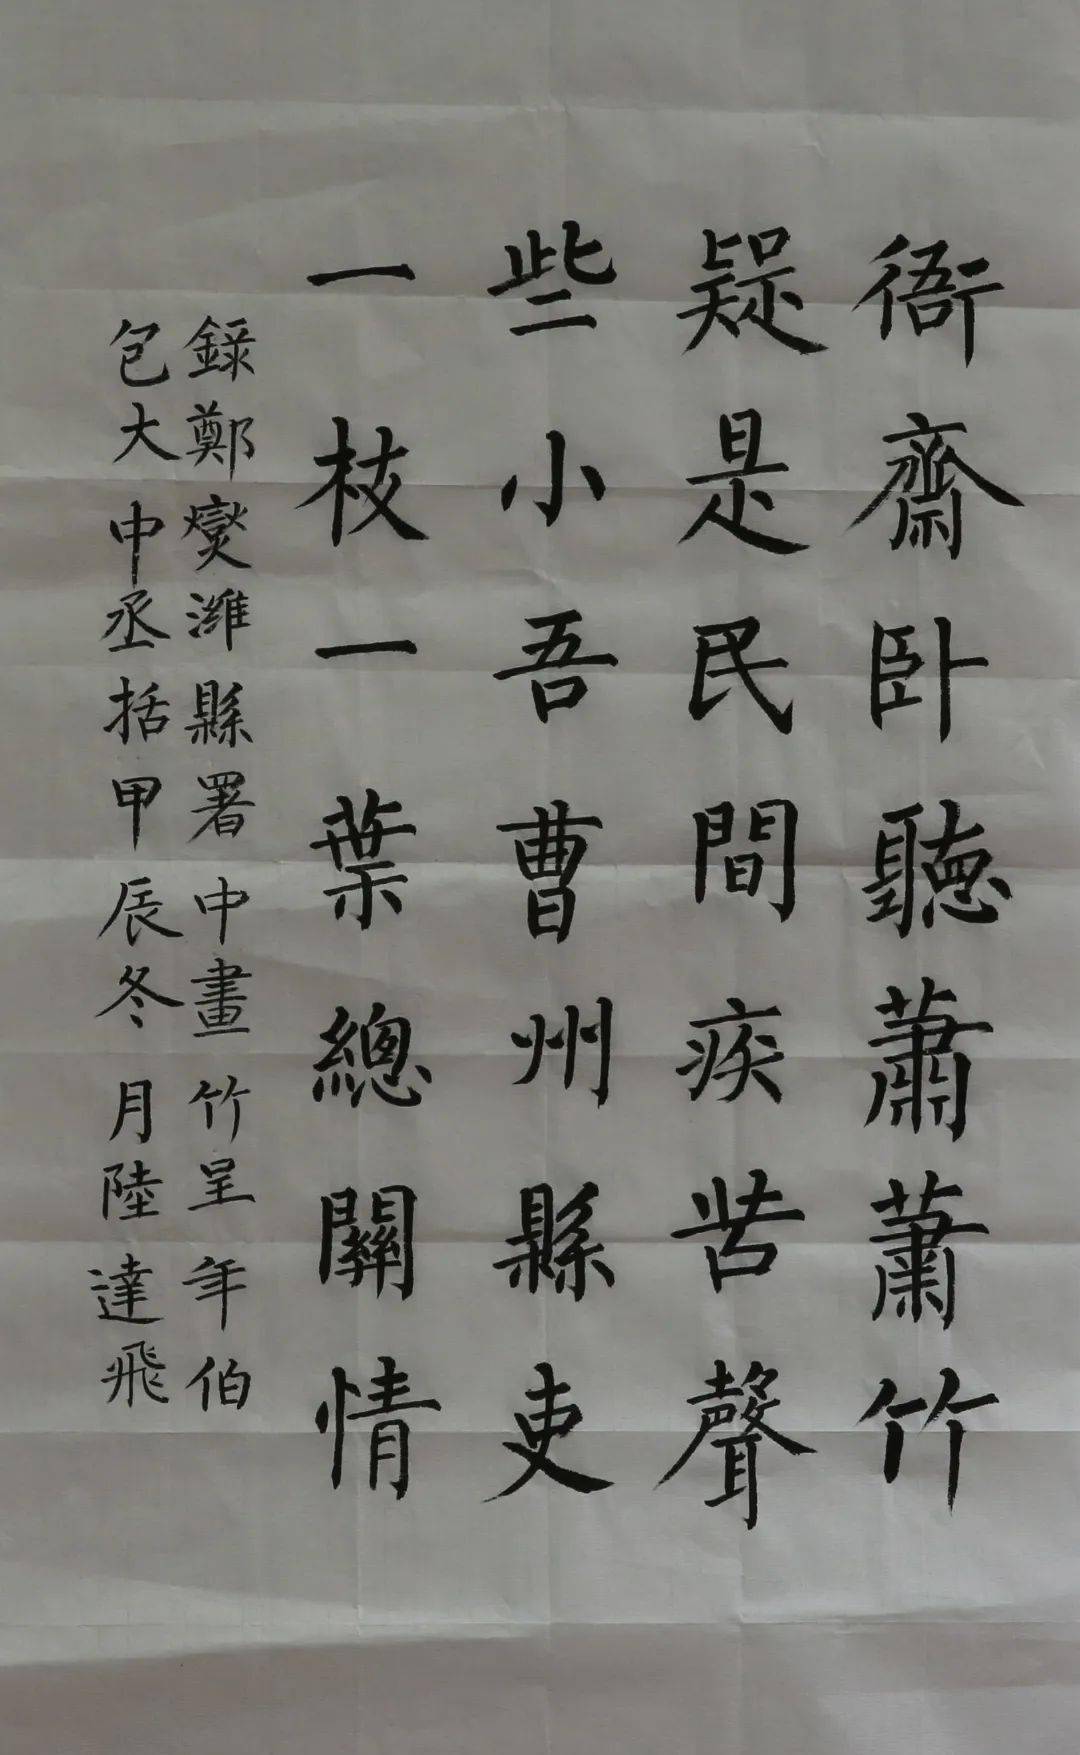 衙齋卧聽蕭蕭竹
疑是民間疾苦聲
些小吾曹州縣吏
一枝一葉總關情
錄鄭燮濰縣署中畫竹呈年伯
包大中丞括甲辰冬月陸達飛